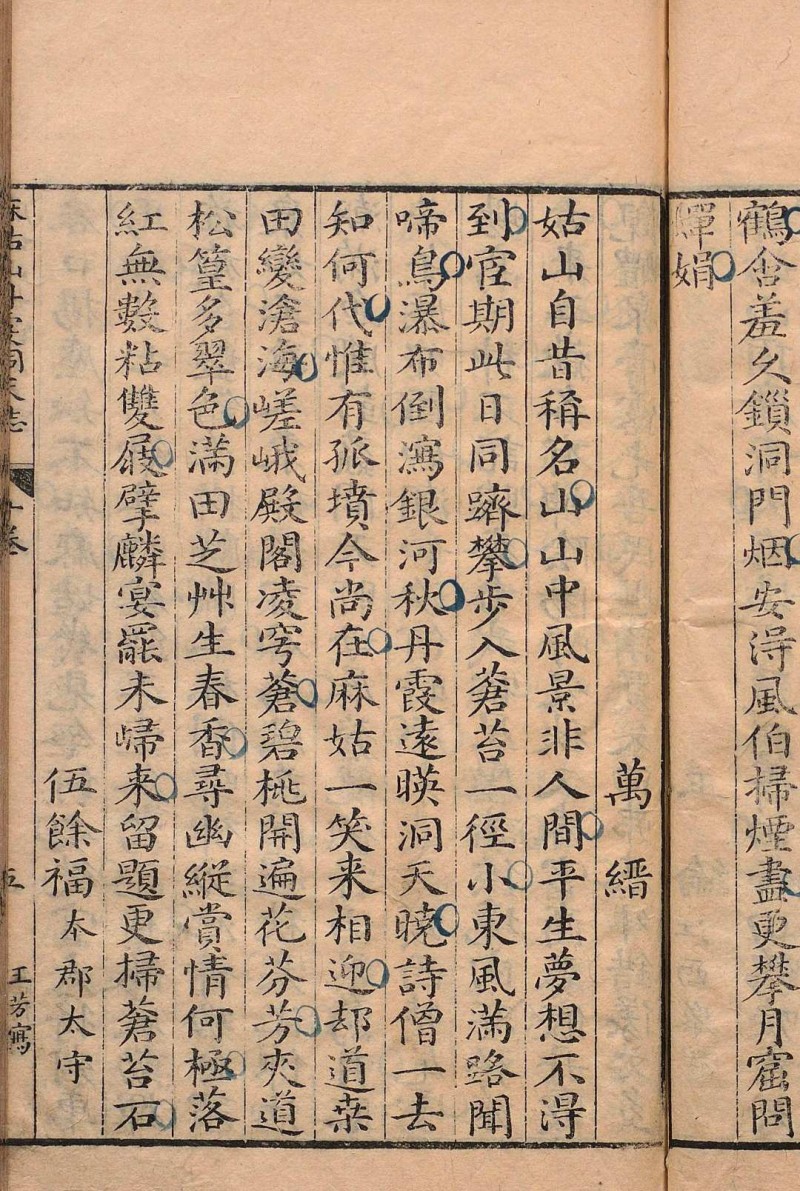 鶴含羞久鎖洞門烟安得風伯掃煙盡更攀月窟問
嬋娟
萬縉
姑山自昔稱名山山中風景非人間平生夢想不得
到宦期此日同躋攀步入蒼苔一徑小東風滿路聞
啼鳥瀑布倒瀉銀河秋丹霞遠暎洞天曉詩僧一去
知何代惟有孤墳今尚在麻姑一笑来相迎却道桒
田變滄海嵯峨殿閣凌穹蒼碧桃開遍花芬芳夾道
松篁多翠色滿田芝艸生春香尋幽縱賞情何極落
紅無數粘雙屐擘麟宴罷未歸来留題更掃蒼苔石
伍餘福本郡太守
麻姑山丹霞洞天志 十卷 五 王芳寫